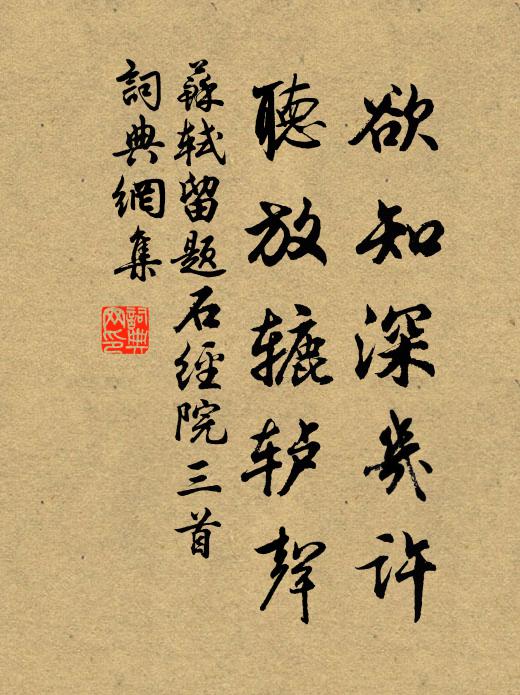 欲知深幾許
聽放辘轳聲
蘇軾留題石經院三首
詞典網集
詞典网印